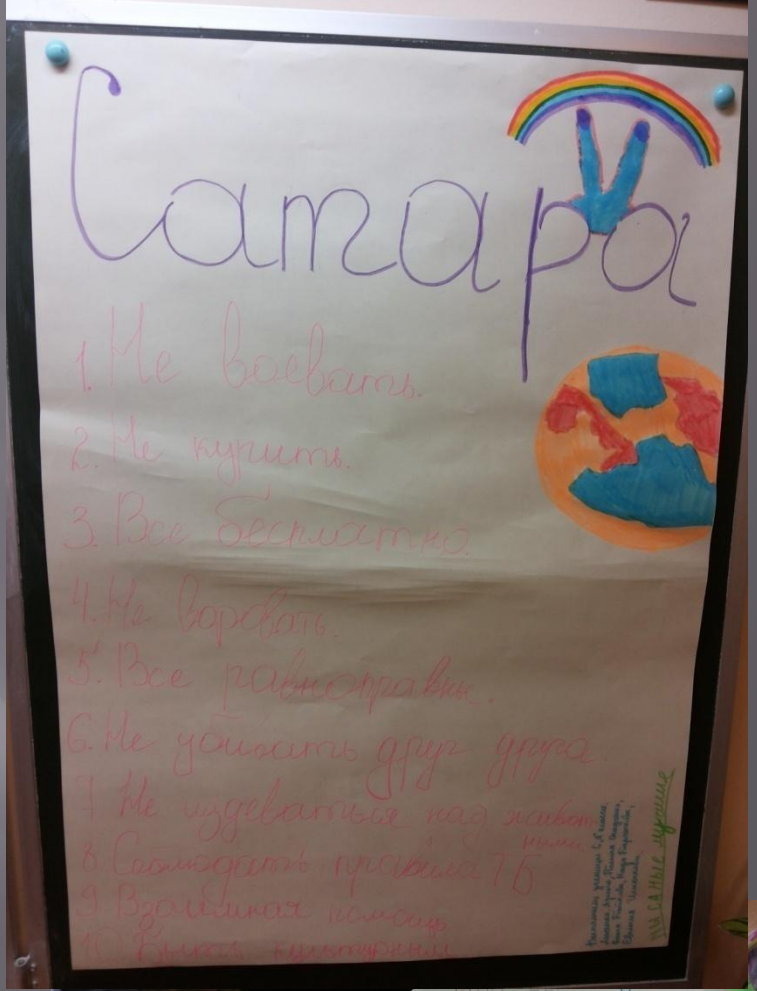 Сатара
1. Не воевать.
2. Не курить.
3. Все бесплатно.
4. Не воровать.
5. Все равноправны.
6. Не убивать друг друга
7. Не издеваться над живот
ными
8. Соблюдать правила ТБ
9. Взаимная помощь
10. Быть культурным
Выполнили ученицы 5 класса:
мы самые лучшие